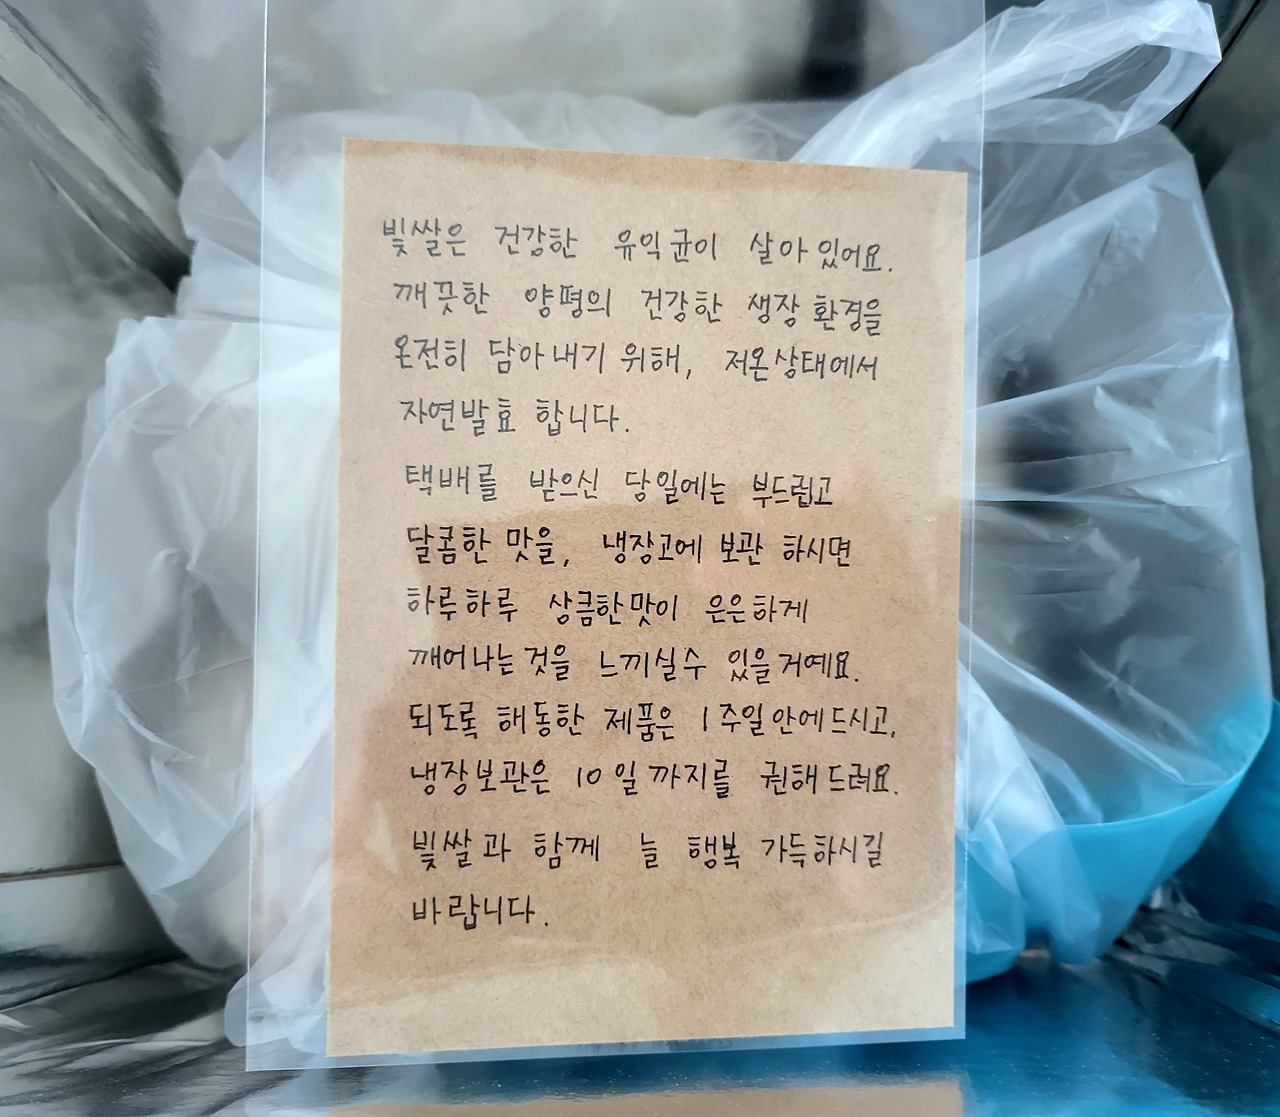 빛쌀은 건강한 유익균이 살아있어요.
깨끗한 양평의 건강한 생장 환경을
온전히 담아내기 위해, 저온상태에서
자연발효 합니다.
택배를 받으신 당일에는 부드럽고
달콤한 맛을, 냉장고에 보관 하시면
하루하루 상큼한맛이 은은하게
깨어나는것을 느끼실수 있을거예요.
되도록 해동한 제품은 1주일안에드시고,
냉장보관은 10일까지를 권해드려요.
빛쌀과 함께 늘 행복 가득하시길
바랍니다.